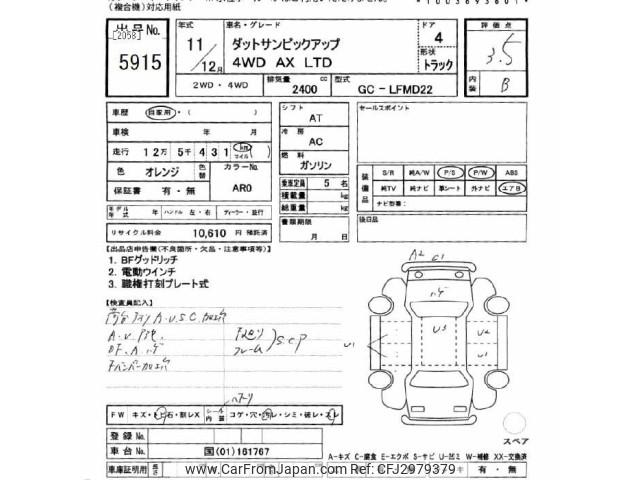 (複合機)対応用紙
出品No. [2058] 5915
年式 11/12月
車名・グレード ダットサンピックアップ 4WD AX LTD
ドア 4
形状 トラック
評価点 3.5
内装 B
2WD・4WD
排気量 2400 cc
型式 GC-LFMD22
車歴 自家用・( )
車検 年 月
走行 12万5千431 km マイル
色 オレンジ 色替
カラーNo. AR0
保証書 有・無
モデル年式 年 ハンドル 左・右 ディーラー・並行
リサイクル料金 10,610 円 預託済
シフト AT
冷房 AC
燃料 ガソリン
乗車定員 5 名
積載量 kg
総重量 kg
書類期限 月 日
セールスポイント
装備品 S/R 純A/W P/S P/W ABS
純TV 純ナビ 革シート 外ナビ エアB
ナビ型番:
後日品
【出品店申告欄(不良箇所・欠品・注意事項等)】
1. BFグッドリッチ
2. 電動ウインチ
3. 職権打刻プレート式
【検査員記入】
A.U.S.C
S.C.P
A2
U3
U2
U1
U1
FW キズ・ヒビ・石・割レX
シート内装 コゲ・穴・汚レ・シミ・破レ・スレ
登録No.
車台No. 国(01)161767
スペア
A-キズ C-腐食 E-エクボ S-サビ U-凹ミ W-補修 XX-交換済
車庫証明用
有・無
www.CarFromJapan.com Ref: CFJ2979379